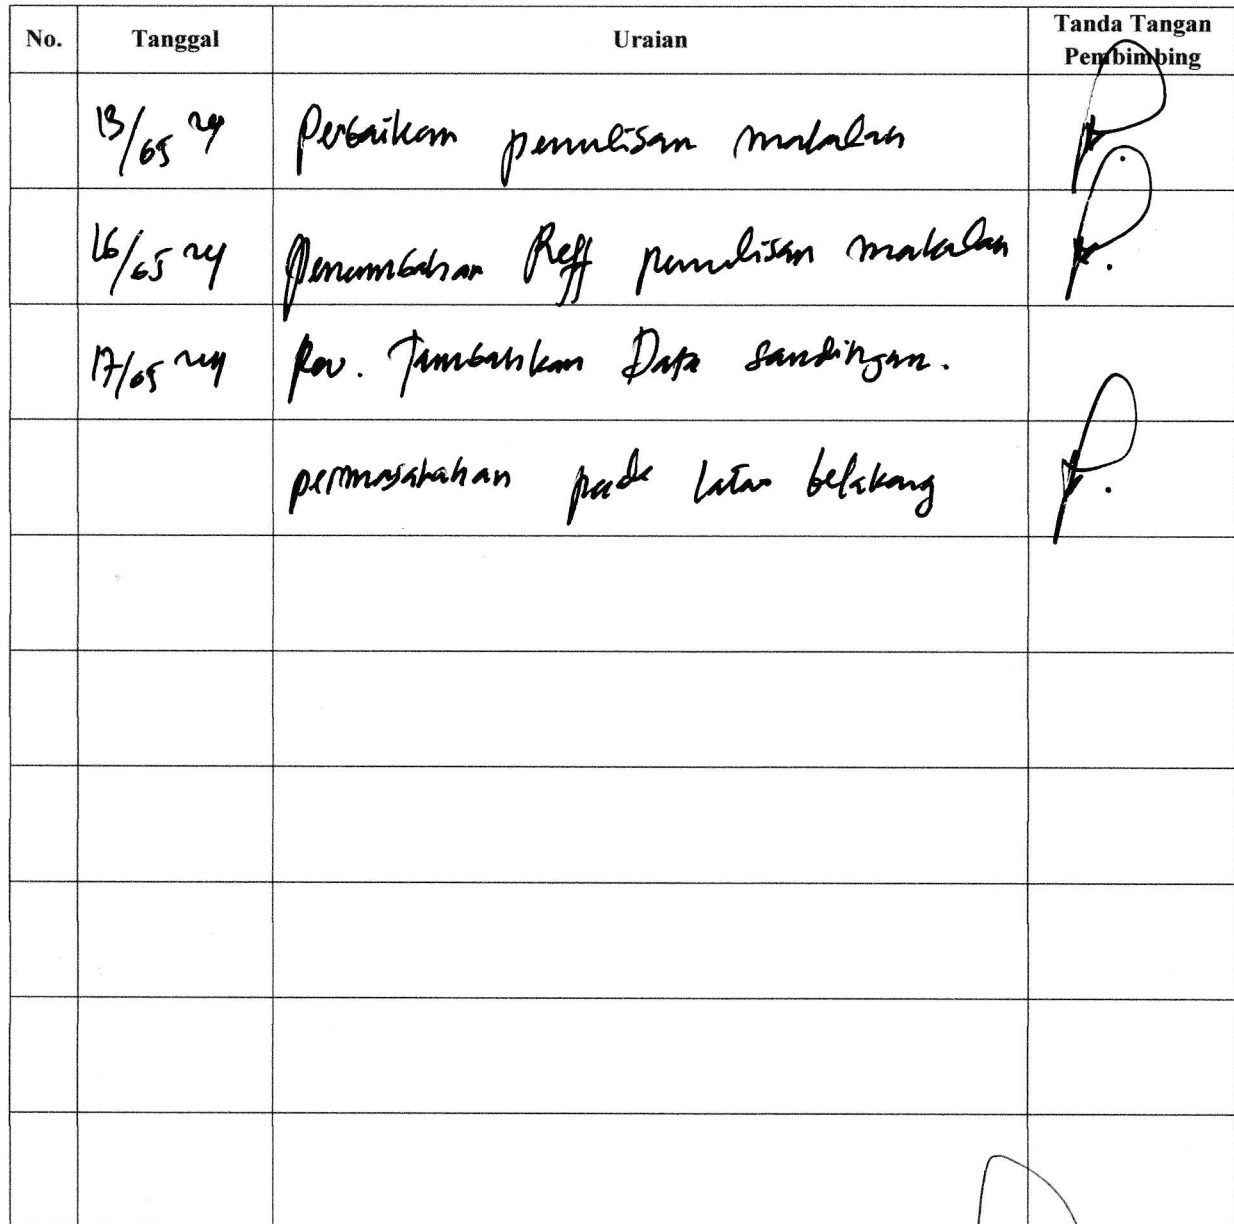 No. Tanggal Uraian Tanda Tangan
Pembimbing
13/05 24 Perbaikan penulisan makalah
16/05 24 Penambahan Reff penulisan makalah
17/05 24 Rev. Tambahkan Data sandingan.
permasalahan pada latar belakang